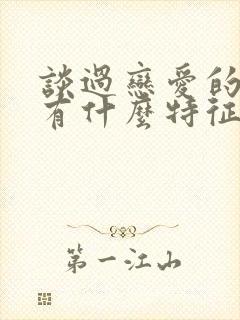 談過戀愛的
有什麼特征
第一江山